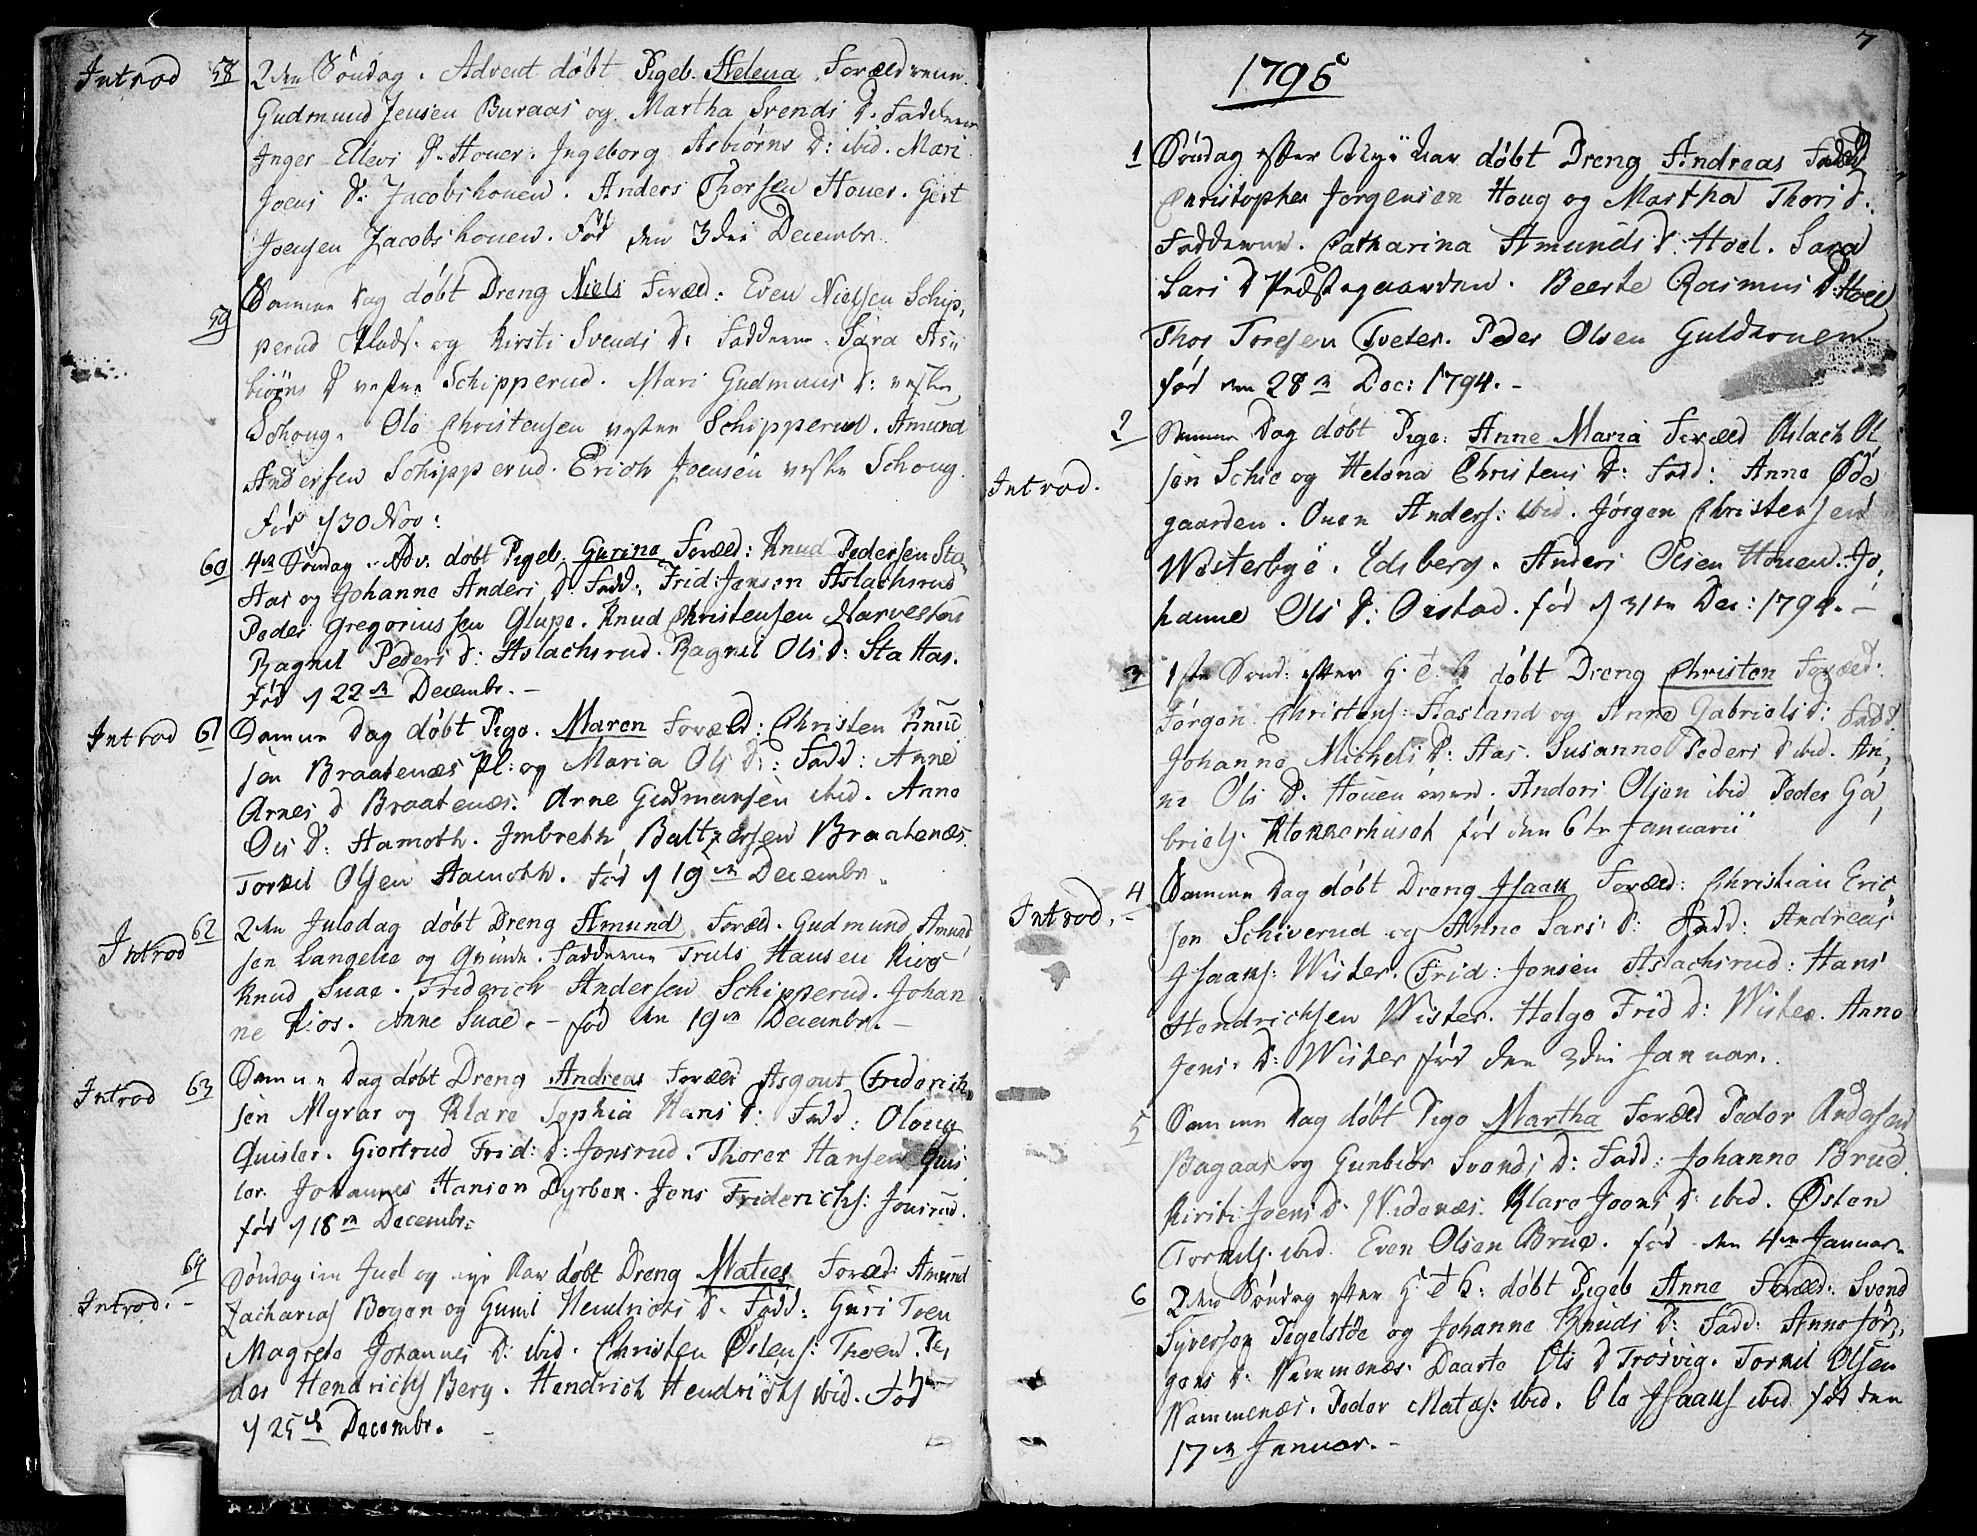 Introd 58 2den Söndag. Advent döbt Pigeb. Helena Forældrene
Gudmund Jensen Buraas og Martha Svends D. Fadderne
Inger Ellevs D. Houer. Ingeborg Asbiörns D: ibid. Mari
Joens D: Jacobshouen. Anders Thorsen Houer. Gert
Joensen Jacobshouen. Föd den 3die Decembr.
59 Samme Dag döbt Dreng Niels Foræld: Even Nielsen Schip,
perud Plads. og Kirsti Svends D: Fadderne Sara As,,
biörns D vestre Schipperud. Mari Gudmuns D: vestre
Schoug. Ole Christensen vestre Schipperud. Amund
Andersen Schipperud. Erich Joensen vestre Schoug
Föd d 30 Nov:
60 4de Söndag Adv. döbt Pigeb. Gurine Foræld: Knud Pedersen Sta
Aas og Johanne Anders D. Fadd: Frid: Jensen Aslachsrud
Peder Gregoriussen Glupe. Knud Christensen Narvesen
Ragnil Peders D: Aslachsrud. Ragnil Ols D: Sta Aas.
Föd d 22de Decembr. -
Introd 61 Samme Dag döbt Pige. Maren Foræld: Christen Knud
sen Braatenæs Pl: og Maria Ols D: Fadd: Anne
Arnes D Braatenæs. Arne Gudmansen ibid. Anne
Ols D: Aamoth. Imbreth Baltzersen Braatenæs.
Torkel Olsen Aamoth. Föd d 19de Decembr.
Introd 62 2den Juledag döbt Dreng Amund Foræld. Gudmund Amund
sen Langelie og Gunild. Fadderne Truls Hansen Kios
Knud Suae. Friderich Andersen Schipperud. Johan
ne Kios. Anne Suae. - föd den 19de Decembr. -
Introd 63 Samme Dag döbt Dreng Andreas Foræld Asgout Friderich
sen Myrar og Klare Sophia Hans D: Fadd: Oloug
Quisler. Giertrud Frid: D: Jonsrud. Thorer Hansen Quis
ler. Johannes Hansen Dyrben. Jens Friderichs: Jonsrud.
föd d 18de Decembr:
Introd. - 64 Söndag im Juel og nye Aar döbt Dreng Maties Foræld: Amund
Zacharias Bøgen og Gunil Hendrichs D. Fadd: Guri Toen
Magrete Johannes D: ibid. Christen Østens: Thoen. Pe,
der Hendrichs Berg. Hendrich Hendrichs ibid. Föd
d 25de Decembr.
7
1795
1 Söndag efter Nye Aar döbt Dreng Andreas Foræld
Christopher Jorgensen Houg og Martha Thors D.
Fadderne. Catharina Amunds D. Hoel. Sara
Lars D Prestegaarden. Beerte Rasmus D: Hoel
Thor Toresen Tveter. Peder Olsen Guldernen
föd den 28de Dec: 1794. -
2 Introd. Samme Dag döbt Pige: Anne Maria Foræld Aslach Ol
sen Schie og Helena Christens D: Fadd: Anne Øde
gaarden. Anders: ibid. Jörgen Christensen
Westerbye. Edsberg. Anders Olsen Houen. Jo,
hanne Ols D: Orstad. föd d 31te Dec: 1794. -
3 1ste Sönd: efter H. 3 K. döbt Dreng Christen Foræld:
Jörgen Christens: Aasland og Anne Gabriels D: Fadd.
Johanne Michels D: Aas. Susanne Peders D ibid. An,
ne Ols D. Houen övre. Anders Olsen ibid Peder Ga
briels. Klokkerhuset föd den 6te Januarii
Introd. - 4 Samme Dag döbt Dreng Isaak Foræld: Christian Eric
sen Schiverud og Anne Lars D: Fadd: Andreas
Isaaks: Wister. Frid: Jensen Aslachsrud: Hans
Hendrichsen Wister. Helge Frid D: Wister. Anne
Jens D: Wister föd den 3die Januar.
5 Samme Dag döbt Pige Martha Foræld Peder Andersen
Bagaas og Gunbior Svends D: Fadd: Johanne Brud.
Kirsti Joens D. Widenæs. Klare Joens D: ibid. Østen
Torkels. ibid. Even Olsen Brue. föd den 4de Januar.
6 2den Söndag efter H 3 K: döbt Pigeb Anne Foræld: Svend
Syversen Tegelstöe og Johanne Knuds D: Fadd: Anne Jör,
gens D: Wammenæs. Daarte Ols D Trosvig. Torkel Olsen
Wammenæs. Peder Maties: ibid. Ole Isaaks ibid föd den
17de Januar. -